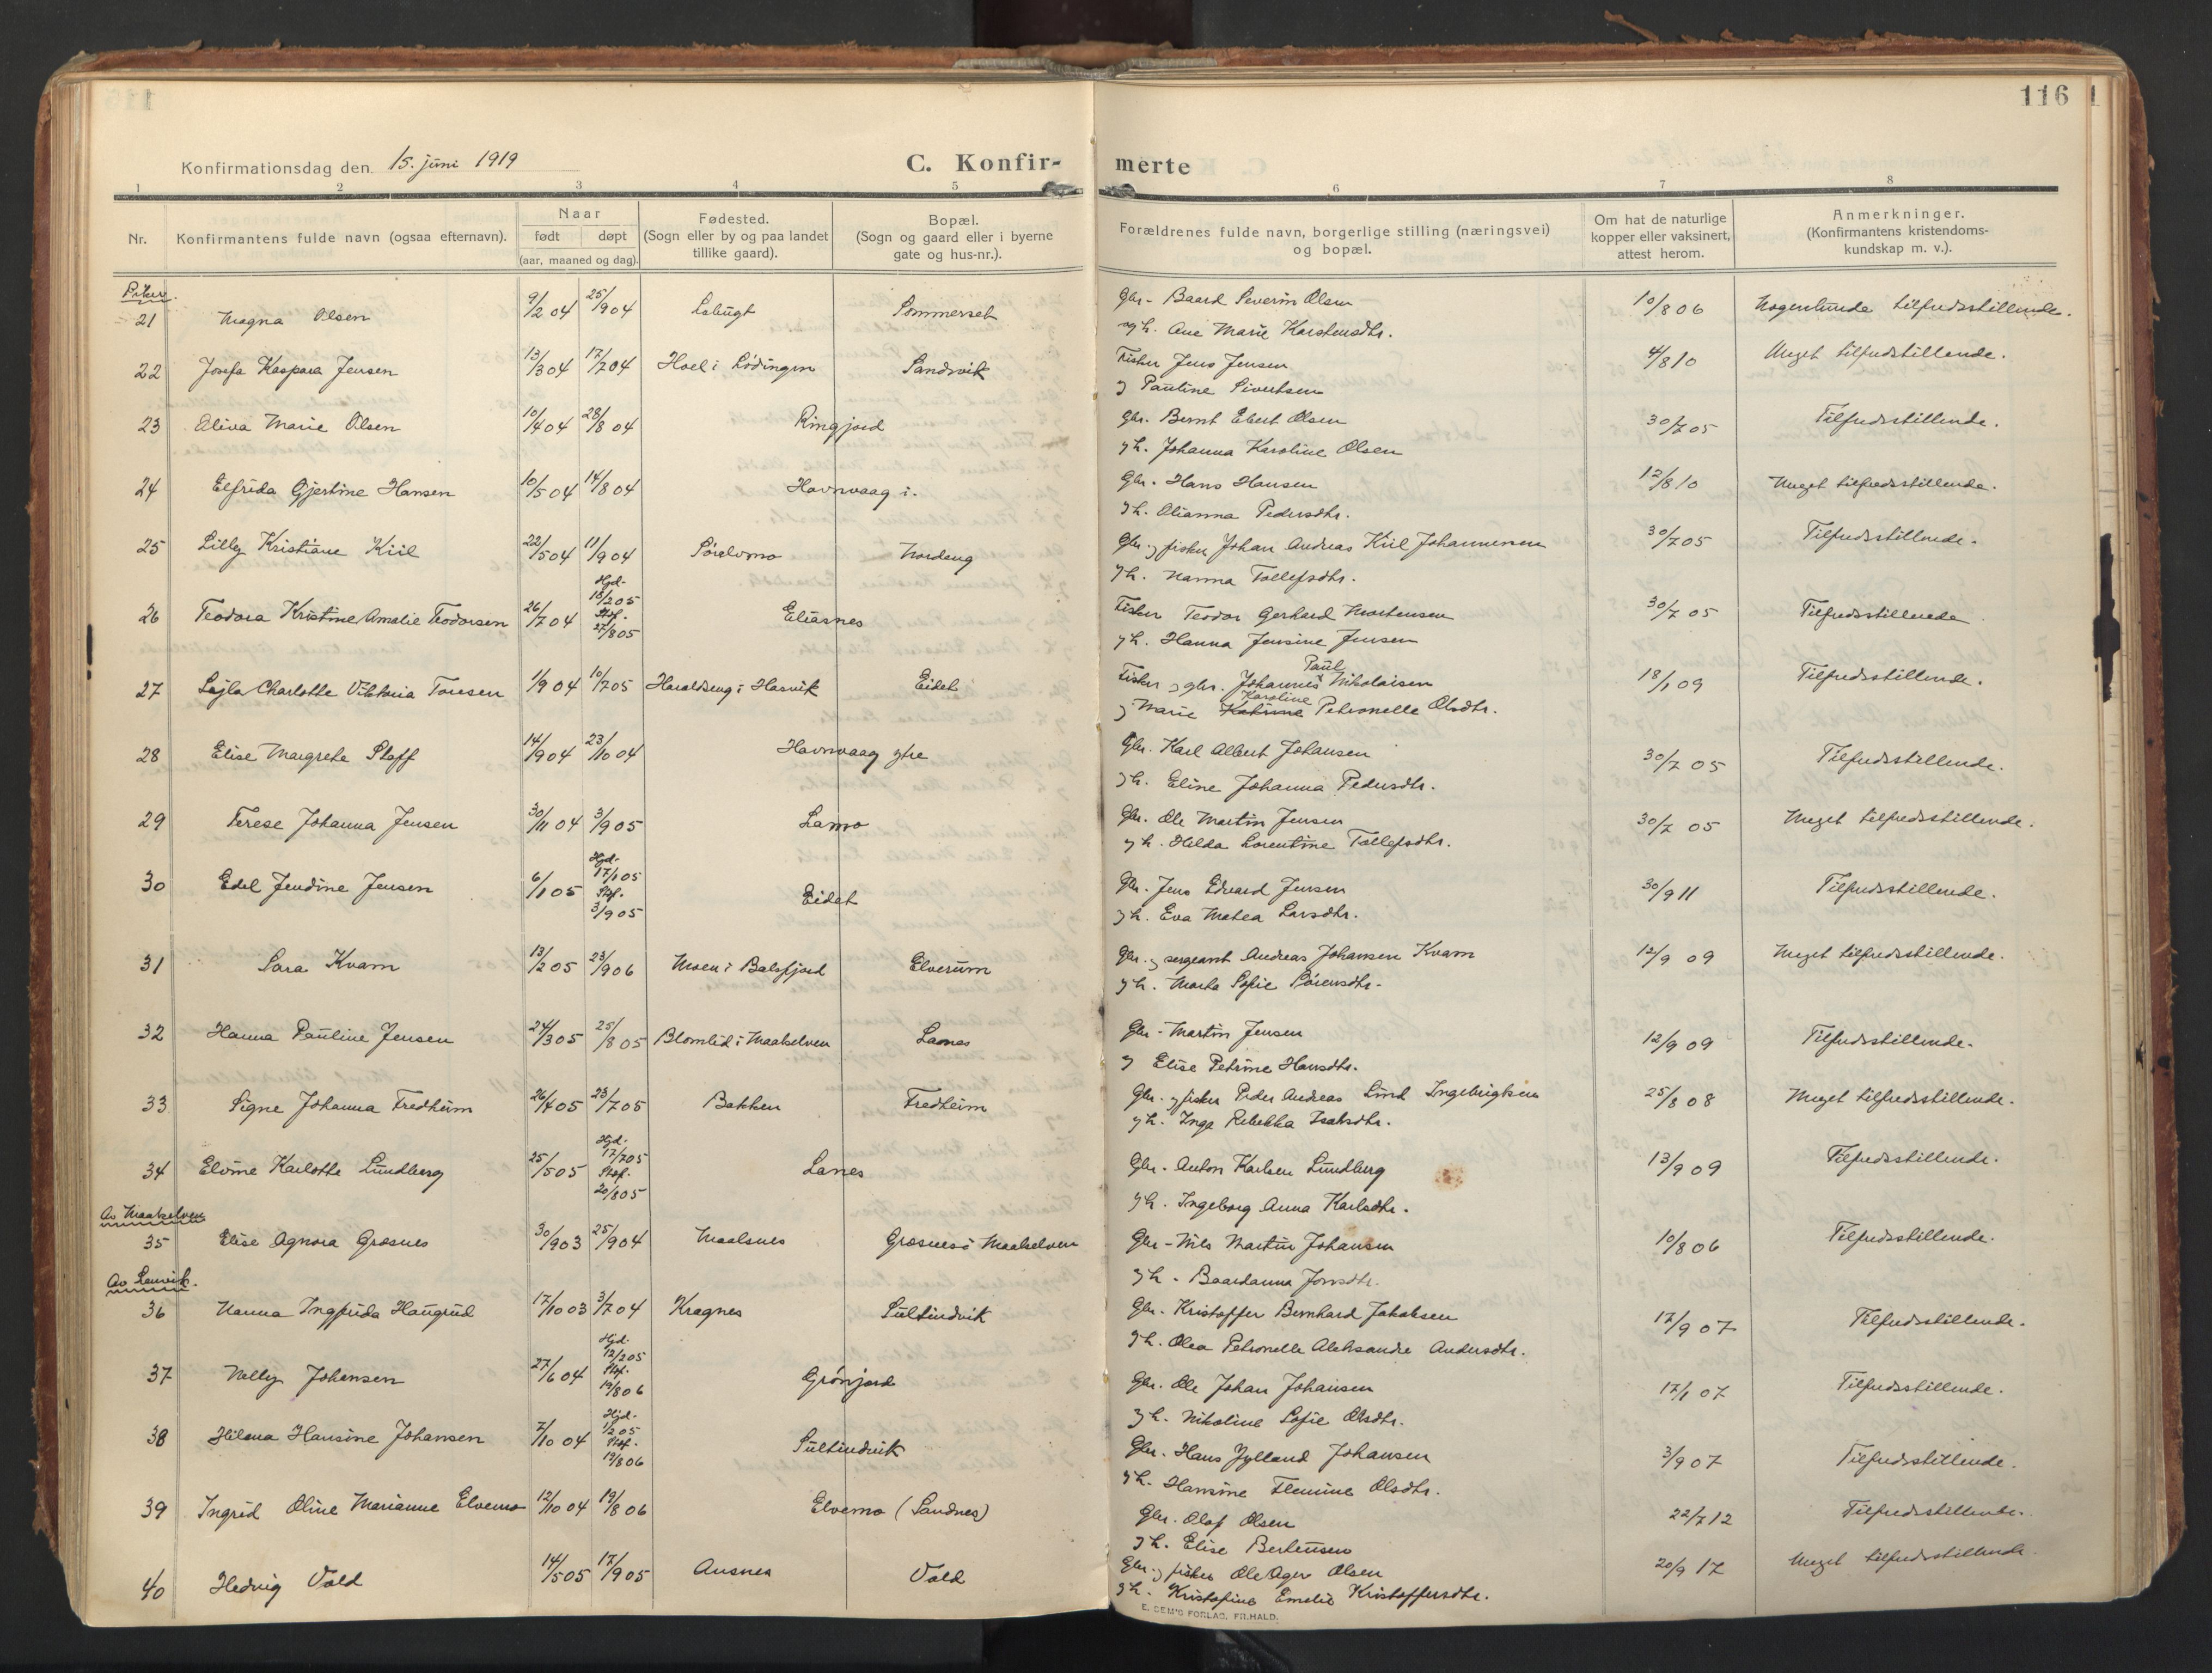 116
Konfirmationsdag den 15. juni 1919
C. Konfir-
merte
1 2 3 4 5 6 7 8
Nr.
Konfirmantens fulde navn (ogsaa efternavn).
Naar
født døpt
(aar, maaned og dag).
Fødested.
(Sogn eller by og paa landet
tillike gaard).
Bopæl.
(Sogn og gaard eller i byerne
gate og hus-nr.).
Forældrenes fulde navn, borgerlige stilling (næringsvei)
og bopæl.
Om hat de naturlige
kopper eller vaksinert,
attest herom.
Anmerkninger.
(Konfirmantens kristendoms-
kundskap m. v.).
Piker.
21 Magna Olsen 9/2 04 25/9 04 Sommerset Gbr. Baard Severin Olsen 10/8 06 Nogenlunde tilfredsstillende.
og h. Ane Marie Karstensdtr.
22 Josefa Kaspara Jensen 13/3 04 17/7 04 Hoel i Lødingen Sandvik Fisker Jens Jensen 4/8 10 Meget tilfredstillende.
og Pauline Sivertsen
23 Aliva Marie Olsen 10/4 04 28/8 04 Ringjord Gbr. Bernt Ebert Olsen 30/7 05 Tilfredsstillende.
og h. Johanna Karoline Olsen
24 Elfrida Gjertine Hansen 10/5 04 14/8 04 Havnvaag i. Gbr. Hans Hansen 12/8 10 Meget tilfredsstillende.
og h. Olianna Pedersdtr.
25 Lilly Kristiane Kiil 22/5 04 11/9 04 Sørelvmo Nordeng Gbr. og fisker Johan Andreas Kiil Johannesen 30/7 05 Tilfredsstillende.
og h. Nanna Tollefsdtr.
26 Teodora Kristine Amalie Teodorsen 26/7 04 Hjd. 18/2 05 Stf. 27/8 05 Eliasnes Fisker Teodor Gerhard Mortensen 30/7 05 Tilfredsstillende
og h. Hanna Jensine Jensen
27 Lajla Charlotte Viktoria Toresen 1/9 04 10/7 05 Haraldseng i Hasvik Eidet Fisker og gbr. Johannes Paul Nikolaisen 18/1 09 Tilfredsstillende.
og Marie Katrine Karoline Petronelle Olsdtr.
28 Elise Margrete Stoff 14/9 04 23/10 04 Havnvaag ytre Gbr. Karl Albert Johansen 30/7 05 Tilfredsstillende.
og h. Eline Johanna Pedersdtr.
29 Terese Johanna Jensen 30/11 04 3/9 05 Lamo Gbr. Ole Martin Jensen 30/7 05 Meget tilfredsstillende.
og h. Hilda Lorentine Tollefsdtr.
30 Edel Jendine Jensen 6/1 05 Hjd. 17/1 05 Stf. 3/9 05 Eidet Gbr. Jens Edvard Jensen 30/9 11 Tilfredsstillende.
og h. Eva Matea Larsdtr.
31 Sara Kvam 13/2 05 23/9 06 Moen i Balsfjord Elverum Gbr. og sergeant Andreas Johansen Kvam 12/9 09 Meget tilfredsstillende.
og h. Marta Sofie Sørensdtr.
32 Hanna Pauline Jensen 24/3 05 25/8 05 Blomlid i Maalselven Lanes Gbr. Martin Jensen 12/9 09 Tilfredsstillende.
og Elise Petrine Hansdtr.
33 Signe Johanna Fredheim 26/4 05 23/7 05 Bakken Fredheim Gbr. og fisker Peder Andreas Lind Ingebrigtsen 25/8 08 Meget tilfredsstillende.
og h. Inga Rebekka Isaksdtr.
34 Elvine Karlotte Lundberg 25/5 05 Hjd. 17/7 05 Stf. 20/8 05 Lanes Gbr. Anton Karlsen Lundberg 13/9 09 Tilfredsstillende.
og h. Ingeborg Anna Karlsdtr.
Av Maalselven
35 Elise Agnora Grosnes 30/9 03 25/9 04 Maalsnes Grosnes i Maalselven Gbr. Nils Martin Johansen 10/8 06 Tilfredsstillende.
og h. Baardanna Jonsdtr.
Av Lenvik.
36 Nanna Ingfrida Haugrud 17/10 03 3/7 04 Kragnes Sultindvik Gbr. Kristoffer Bernhard Jakobsen 17/9 07 Tilfredsstillende.
og h. Olea Petronelle Aleksandre Andersdtr.
37 Nelly Johansen 27/6 04 Hjd. 12/2 05 Stf. 19/8 06 Grønjord Gbr. Ole Johan Johansen 17/1 07 Tilfredsstillende.
og h. Nikoline Sofie Olsdtr.
38 Hilma Hansine Johansen 7/10 04 Hjd. 1/2 05 Stf. 19/8 06 Sultindvik Gbr. Hans Jylland Johansen 3/9 07 Tilfredsstillende.
og h. Hansine Flemine Olsdtr.
39 Ingrid Oline Marianne Elvemo 12/10 04 19/8 06 Elvemo (Sandnes) Gbr. Olaf Olsen 22/7 12 Tilfredsstillende.
og h. Elise Bertensen
40 Hedvig Vold 14/5 05 17/9 05 Ausnes Vold Gbr. og fisker Ole Ager Olsen 20/9 17 Meget tilfredsstillende.
og h. Kristofine Emelie Kristoffersdtr.
E. SEM'S FORLAG, FR.HALD.